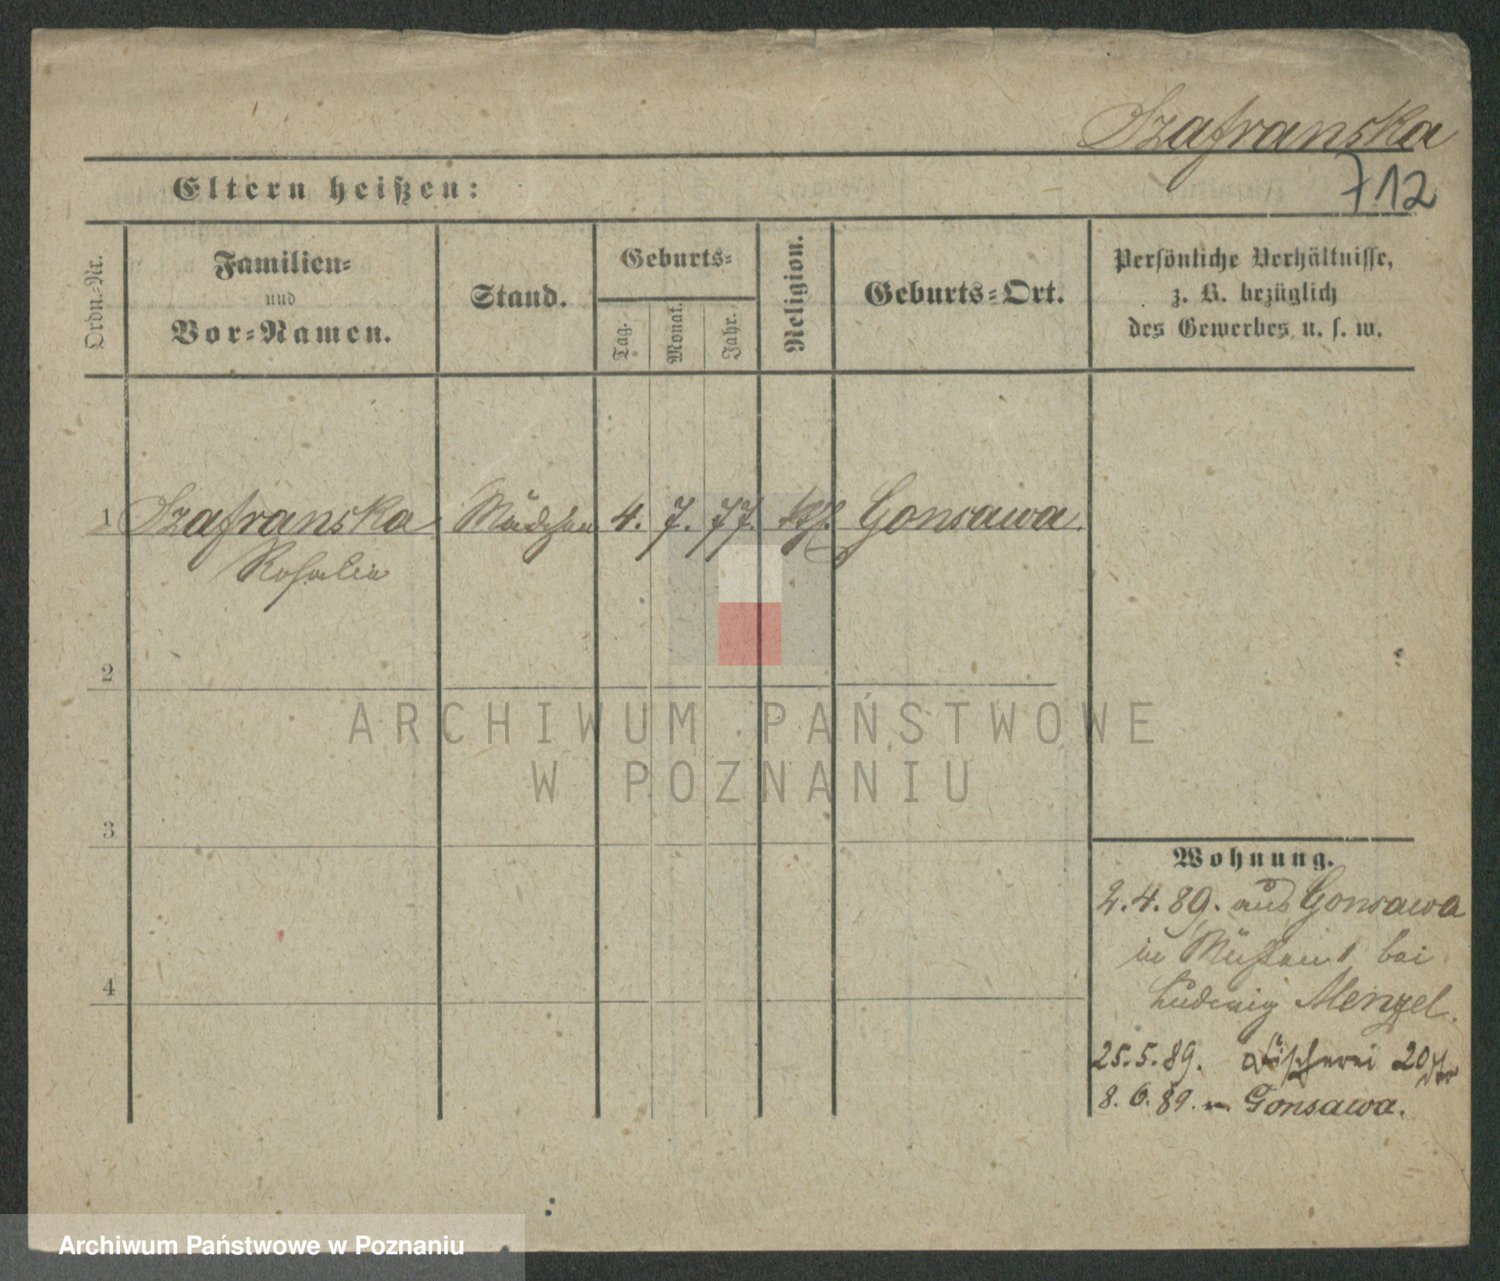 Szafranska
712
Eltern heißen:
Ordn.-Nr.
Familien-
und
Vor-Namen.
Stand.
Geburts-
Tag.
Monat.
Jahr.
Religion.
Geburts-Ort.
Persönliche Verhältnisse,
z. B. bezüglich
des Gewerbes u. s. w.
1 Szafranska Mädchen 4. 7. 77. kth. Gonsawa.
Rosalie
2
3
4
Wohnung.
2.4.89. aus Gonsawa
in bei
Ludwig Menzel.
25.5.89. Fischerei 20
8.6.89. n. Gonsawa.
ARCHIWUM PAŃSTWOWE
W POZNANIU
Archiwum Państwowe w Poznaniu